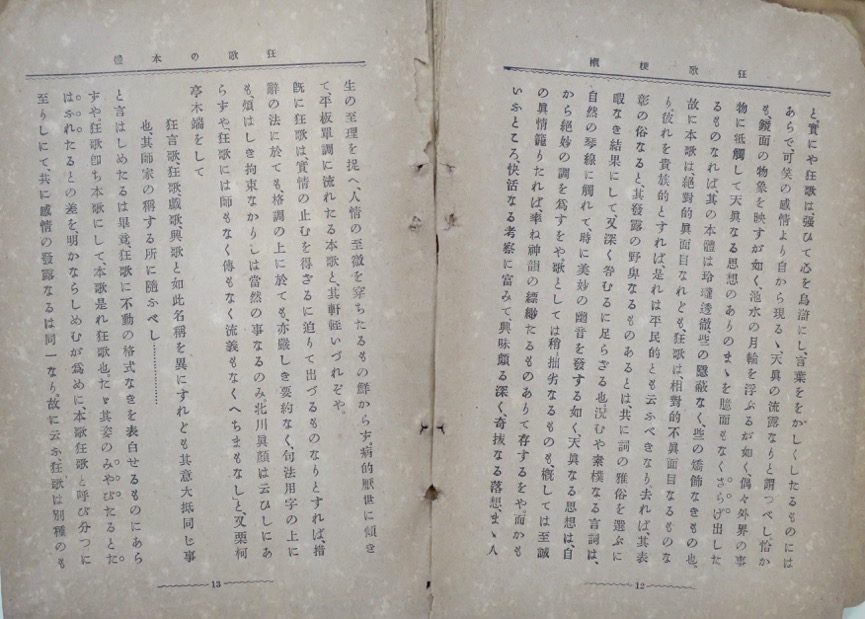 狂歌梗概
と、實にや狂歌は、强ひて心を烏滸にし、言葉ををかしくしたるものには
あらで、可笑の感情より自から現るゝ天眞の流露なりと謂つべし、恰か
も、鏡面の物象を映すが如く、池水の月輪を浮ぶるが如く、偶々外界の事
物に牴觸して天眞なる思想のありのまゝを臆面もなくさらげ出した
るものなれば、其の本體は玲瓏透徹些の隱蔽なく、些の矯飾なきもの也。
故に本歌は絕對的眞面目なれども、狂歌は、相對的不眞面目なるものな
り、彼れを貴族的とすれば是れは平民的とも云ふべきなり、去れば、其表
彰の俗なると、其發露の野卑なるものあるとは、共に詞の雅俗を選ぶに
暇なき結果にして、又深く咎むるに足らざる也、況むや素樸なる言詞は、
自然の琴線に觸れて、時に美妙の幽音を發する如く、天眞なる思想は、自
から絕妙の調を爲すをや、歌としては稍拙劣なるものも、槪しては至誠
の眞情籠りたれば、率ね神韻の縹緲たるものありて存するをや、而かも
いふところ、快活なる考察に富みて、興味頗る深く、奇拔なる落想、まゝ人
12
狂歌の本體
生の至理を捉へ、人情の至微を穿ちたるもの鮮からず、病的厭世に傾き
て、平板單調に流れたる本歌と、其軒輊いづれぞや。
旣に狂歌は、實情の止むを得ざるに迫りて出づるものなりとすれば、措
辭の法に於ても、格調の上に於ても、亦嚴しき要約なく、句法用字の上に
も、煩はしき拘束なかりしは當然の事なるのみ。北川眞顏は云ひしにあ
らずや、狂歌には師もなく傳もなく流義もなくへちまもなしと、又栗柯
亭木端をして
狂言歌、狂歌、戯歌、興歌と如此名稱を異にすれども其意大抵同じ事
也、其師家の稱する所に隨ふべし…………
と言はしめたるは畢竟、狂歌に不動の格式なきを表白せるものにあら
ずや。狂歌卽ち本歌にして、本歌是れ狂歌也。たゞ其姿のみやびたるとた
はふれたるとの差を明かならしめむが爲めに、本歌狂歌と呼び分つに
至りしにて、共に感情の發露なるは同一なり。故に云ふ、狂歌は別種のも
13